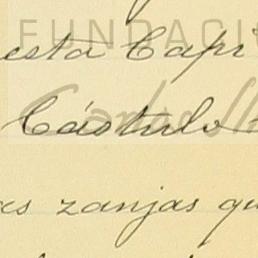 FUNDACI
esta Capi
Cástulo
as zanjas qu